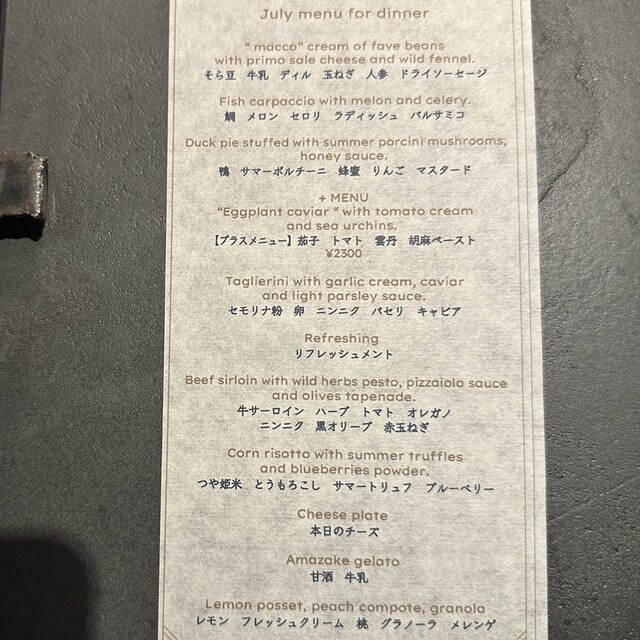 July menu for dinner
" macco" cream of fave beans
with primo sale cheese and wild fennel.
そら豆　牛乳　ディル　玉ねぎ　人参　ドライソーセージ
Fish carpaccio with melon and celery.
鯛　メロン　セロリ　ラディッシュ　バルサミコ
Duck pie stuffed with summer porcini mushrooms,
honey sauce.
鴨　サマーポルチーニ　蜂蜜　りんご　マスタード
+ MENU
"Eggplant caviar " with tomato cream
and sea urchins.
【プラスメニュー】茄子　トマト　雲丹　胡麻ペースト
¥2300
Taglierini with garlic cream, caviar
and light parsley sauce.
セモリナ粉　卵　ニンニク　パセリ　キャビア
Refreshing
リフレッシュメント
Beef sirloin with wild herbs pesto, pizzaiola sauce
and olives tapenade.
牛サーロイン　ハーブ　トマト　オレガノ
ニンニク　黒オリーブ　赤玉ねぎ
Corn risotto with summer truffles
and blueberries powder.
つや姫米　とうもろこし　サマートリュフ　ブルーベリー
Cheese plate
本日のチーズ
Amazake gelato
甘酒　牛乳
Lemon posset, peach compote, granola
レモン　フレッシュクリーム　桃　グラノーラ　メレンゲ